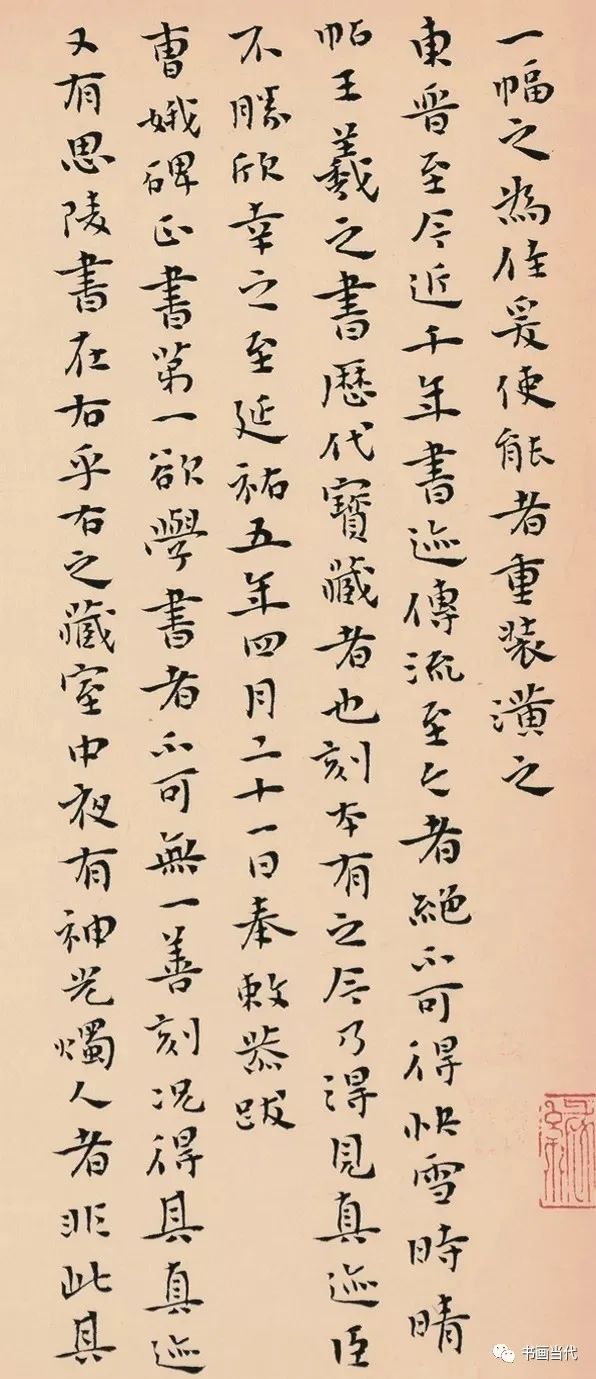 一幅之為佳爰使能者重装潢之
東晉至今近千年書迹傳流至今者絕不可得快雪時晴
帖王羲之書歷代寶藏者也刻本有之今乃得見真迹臣
不勝欣幸之至延祐五年四月二十一日奉敕恭跋
曹娥碑正書第一欲學書者不可無一善刻况得其真迹
又有思陵書在右乎右之藏室中夜有神光燭人者非此其
书画当代